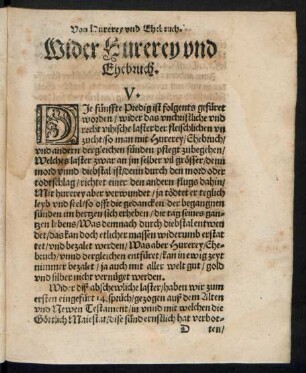 Von Hurerey vnd Ehebruch.
Wider Hurerey vnd
Ehebruch.
V.
DIe fünffte Predig ist folgents gefüret
worden / wider das vnchristliche vnd
recht vihische laster der fleischlichen vn
zucht / so man mit Hurerey / Ehebruch /
vnd andern dergleichen sünden pflegt zubegehen /
Welches laster zwar an jm selber vil grösser / denn
mord vnnd diebstal ist / denn durch den mord oder
todtschlag / richtet einer den andern flugs dahin /
Mit hurerey aber verwundet / ja tödtet er teglich
leyb vnd seel / so offt die gedancken der begangnen
sünden im hertzen sich erheben / die tag seines gan-
tzen lebens / Was demnach durch diebstal entwen
det / das kan doch etlicher massen widerumb erstat
tet / vnd bezalet werden / Was aber Hurerey / Ehe-
bruch / vnnd dergleichen entfüret / kan in ewig zeyt
nimmer bezalet / ja auch mit aller welt gut / gold
vnd silber nicht vernüget werden.
Wider diß abschewliche laster / haben wir zum
ersten eingefürt 14. sprüch / gezogen auß dem Alten
vnd Newen Testament / in vnnd mit welchen die
Göttlich Maiestat / dise sünd ernstlich hat verbot-
D ten /